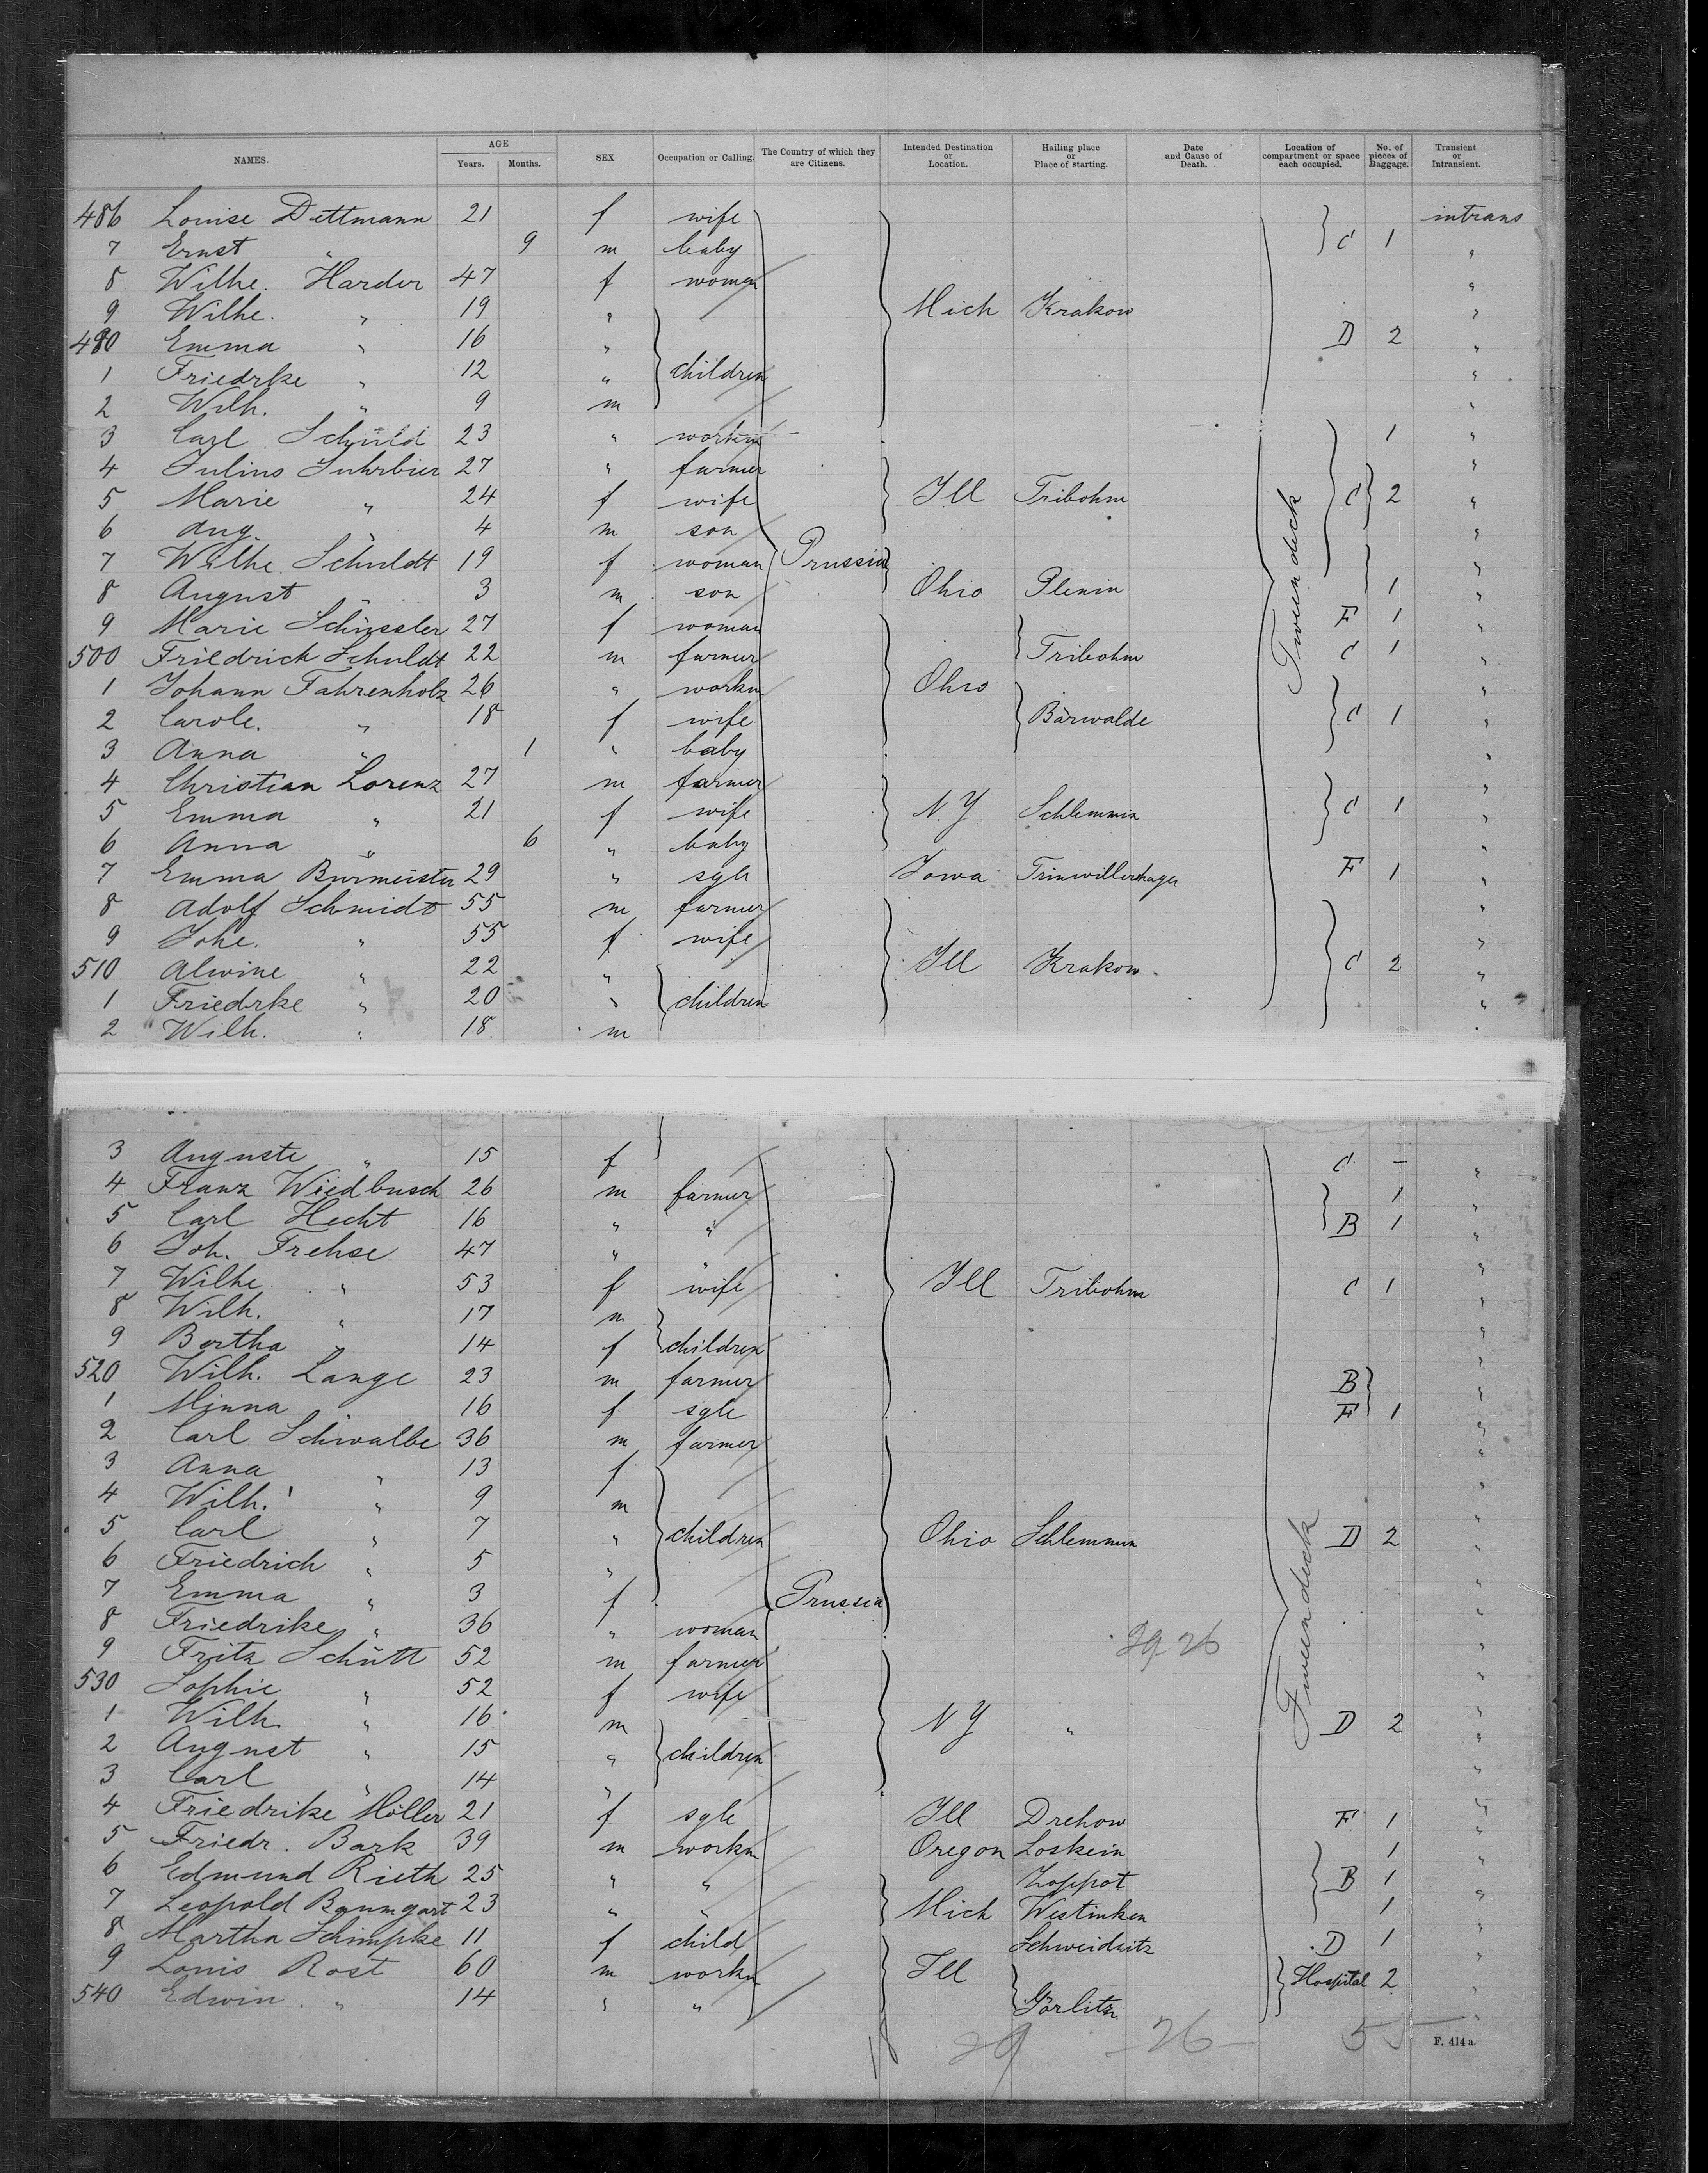 NAMES. AGE Years. Months. SEX Occupation or Calling. The Country of which they are Citizens. Intended Destination or Location. Hailing place or Place of starting. Date and Cause of Death. Location of compartment or space each occupied. No. of pieces of Baggage. Transient or Intransient.
486 Louise Dettmann 21 f wife intrans
7 Ernst " 9 m baby C 1 "
8 Wilhe. Harder 47 f woman "
9 Wilhe. " 19 " Mich Krakow "
490 Emma " 16 " D 2 "
1 Friedrke " 12 " children "
2 Wilh. " 9 m "
3 Carl Schuld 23 " workm 1 "
4 Julius Suhrbier 27 " farmer "
5 Marie " 24 f wife Ill Tribohm C 2 "
6 Aug. " 4 m son "
7 Wilhe. Schuldt 19 f woman Prussia "
8 August " 3 m son Ohio Plenin 1 "
9 Marie Schüssler 27 f woman F 1 "
500 Friedrich Schuldt 22 m farmer Tribohm C 1 "
1 Johann Fahrenholz 26 " workm Ohio "
2 Carole. " 18 f wife Barwalde C 1 "
3 Anna " 1 " baby "
4 Christian Lorenz 27 m farmer "
5 Emma " 21 f wife N.Y Schlemmin C 1 "
6 Anna " 6 " baby "
7 Emma Burmeister 29 " sgle Iowa Trinwillershagen F 1 "
8 Adolf Schmidt 55 m farmer "
9 Johe. " 55 f wife "
510 Alwine " 22 " Ill Krakow C 2 "
1 Friedrke " 20 " children "
2 Wilh. " 18 m "
Tweendeck
3 Auguste " 15 f C - "
4 Franz Wiedbusch 26 m farmer 1 "
5 Carl Hecht 16 " " B 1 "
6 Joh. Frehse 47 " " "
7 Wilhe. " 53 f wife Ill Tribohm C 1 "
8 Wilh. " 17 m "
9 Bertha " 14 f children "
520 Wilh. Lange 23 m farmer B "
1 Minna " 16 f sgle F 1 "
2 Carl Schwalbe 36 m farmer "
3 Anna " 13 f "
4 Wilh. " 9 m "
5 Carl " 7 " children Ohio Schlemmin D 2 "
6 Friedrich " 5 " "
7 Emma " 3 f Prussia "
8 Friedrike " 36 " woman 29-26 "
9 Fritz Schütt 52 m farmer "
530 Sophie " 52 f wife "
1 Wilh. " 16 m N Y " D 2 "
2 August " 15 " children "
3 Carl " 14 " "
4 Friedrike Möller 21 f sgle Ill Drehow F 1 "
5 Friedr. Bark 39 m workm Oregon Loskein 1 "
6 Edmund Rieth 25 " " Zoppot B 1 "
7 Leopold Baumgart 23 " " Mich Westinken 1 "
8 Martha Schimpke 11 f child Schweidnitz D 1 "
9 Louis Rost 60 m workm Ill Hospital 2 "
540 Edwin " 14 " " Görlitz "
Tweendeck
29 26 55
F. 414 a.